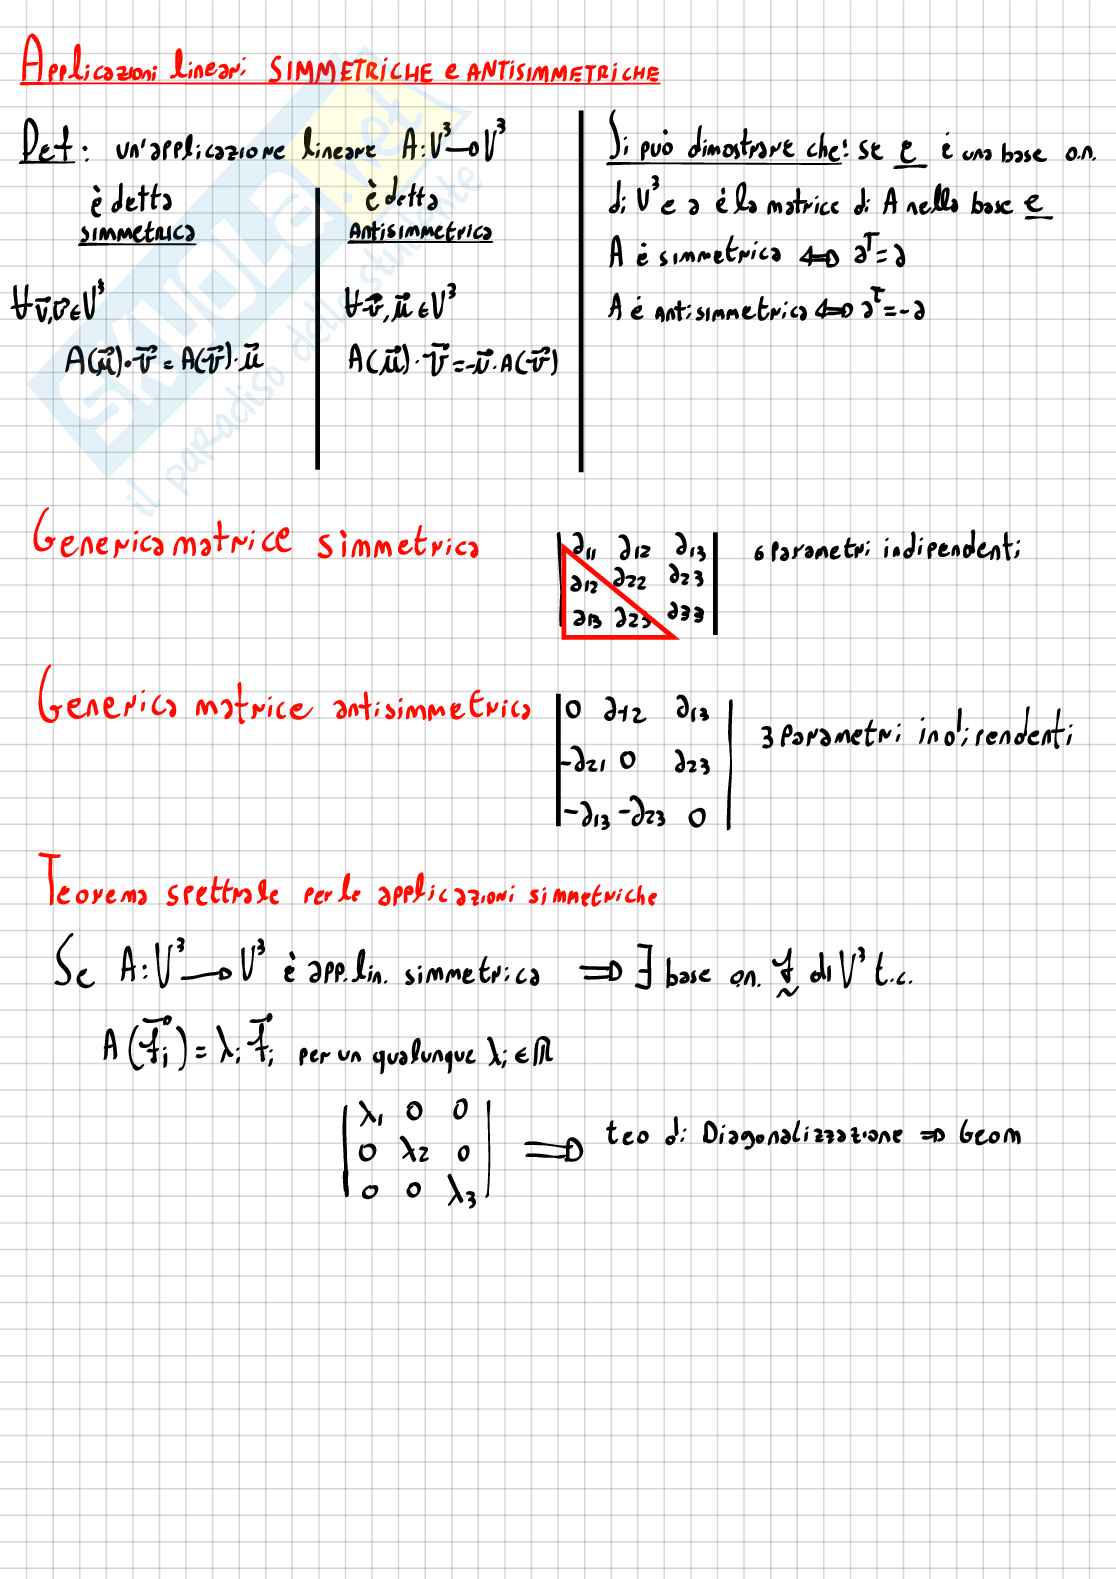 Applicazioni lineari SIMMETRICHE e ANTISIMMETRICHE
Def: un'applicazione lineare A: V³→V³
è detta simmetrica
∀ v⃗, v⃗ ∈ V³
A(u⃗)·v⃗ = A(v⃗)·u⃗
è detta Antisimmetrica
∀ v⃗, u⃗ ∈ V³
A(u⃗)·v⃗ = -u⃗·A(v⃗)
Si può dimostrare che: se e è una base o.n.
di V³ e a è la matrice di A nella base e
A è simmetrica ⟺ aᵀ = a
A è antisimmetrica ⟺ aᵀ = -a
Generica matrice simmetrica
a11 a12 a13
a12 a22 a23
a13 a23 a33
6 parametri indipendenti
Generica matrice antisimmetrica
0 a12 a13
-a21 0 a23
-a13 -a23 0
3 parametri indipendenti
Teorema spettrale per le applicazioni simmetriche
Se A: V³→V³ è app. lin. simmetrica ⟹ ∃ base on. f di V³ t.c.
A(f⃗i) = λi f⃗i per un qualunque λi ∈ ℝ
λ1 0 0
0 λ2 0
0 0 λ3
⟹ teo di Diagonalizzazione ⇒ Geom
SKUOLA.net
il paradiso dello studente